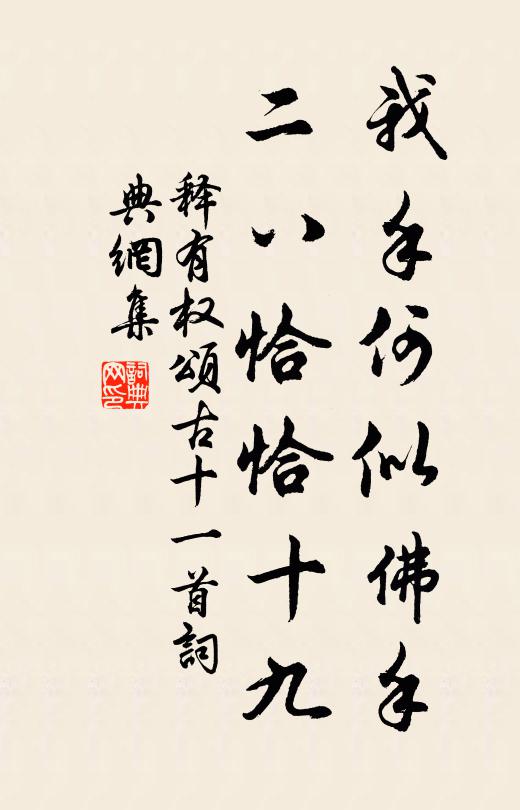 我手何似佛手
二八恰恰十九
释有权頌古十一首詞
典網集
詞典网印